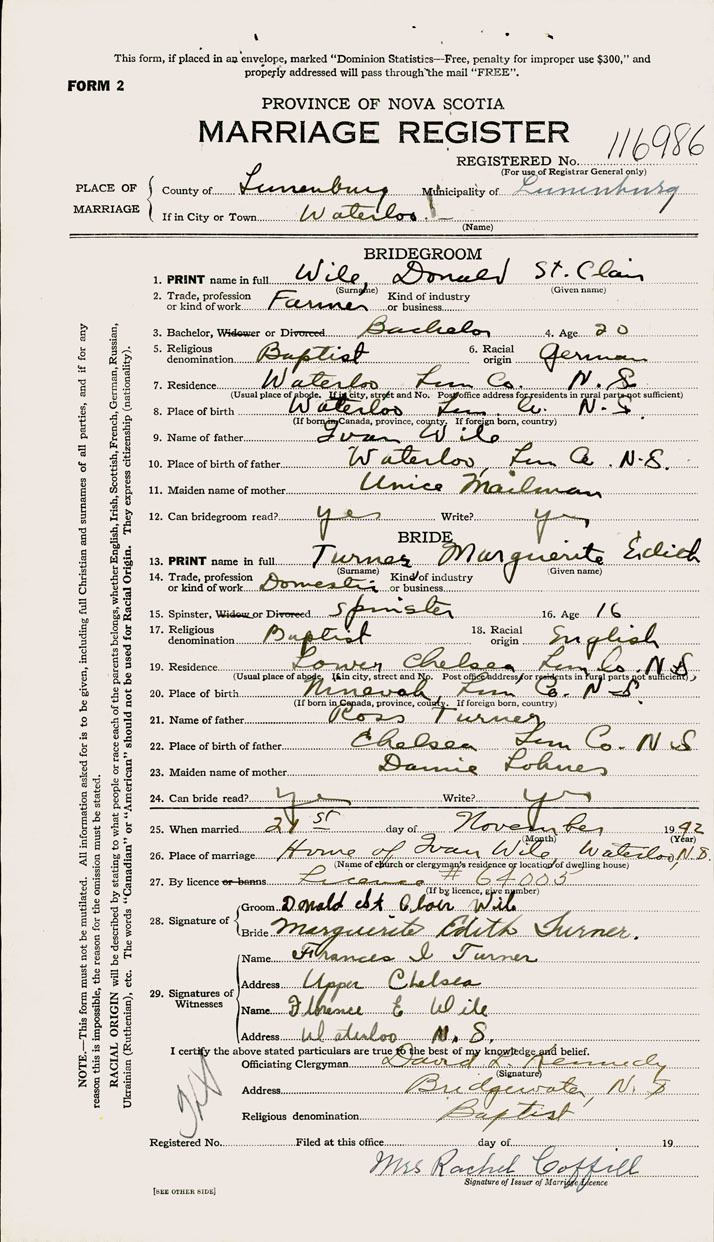 This form, if placed in an envelope, marked "Dominion Statistics—Free, penalty for improper use $300," and
properly addressed will pass through the mail "FREE".
FORM 2
PROVINCE OF NOVA SCOTIA
MARRIAGE REGISTER
REGISTERED No. 116986
(For use of Registrar General only)
PLACE OF MARRIAGE
County of Lunenburg Municipality of Lunenburg
If in City or Town Waterloo
(Name)
BRIDEGROOM
1. PRINT name in full Wile, Donald St. Clair
(Surname) (Given name)
2. Trade, profession or kind of work Farmer Kind of industry or business
3. Bachelor, Widower or Divorced Bachelor 4. Age 20
5. Religious denomination Baptist 6. Racial origin German
7. Residence Waterloo Lun Co. N.S.
(Usual place of abode. If in city, street and No. Post office address for residents in rural parts not sufficient)
8. Place of birth Waterloo Lun. Co. N.S.
(If born in Canada, province, county. If foreign born, country)
9. Name of father Ivan Wile
10. Place of birth of father Waterloo, Lun Co. N.S.
11. Maiden name of mother Unice Mailman
12. Can bridegroom read? yes Write? yes
BRIDE
13. PRINT name in full Turner Marguerite Edith
(Surname) (Given name)
14. Trade, profession or kind of work Domestic Kind of industry or business
15. Spinster, Widow or Divorced Spinster 16. Age 16
17. Religious denomination Baptist 18. Racial origin English
19. Residence Lower Chelsea Lun Co. N.S.
(Usual place of abode. If in city, street and No. Post office address for residents in rural parts not sufficient)
20. Place of birth Ninevah, Lun Co. N.S.
(If born in Canada, province, county. If foreign born, country)
21. Name of father Ross Turner
22. Place of birth of father Chelsea Lun Co. N S
23. Maiden name of mother Lohnes
24. Can bride read? yes Write? yes
25. When married 21st day of November 1942
(Month) (Year)
26. Place of marriage Home of Ivan Wile, Waterloo, N.S.
(Name of church or clergyman's residence or location of dwelling house)
27. By licence or banns License # 64005
(If by licence, give number)
28. Signature of
Groom Donald St Clair Wile
Bride Marguerite Edith Turner.
29. Signatures of Witnesses
Name Frances I Turner
Address Upper Chelsea
Name Florence E Wile
Address Waterloo N. S.
I certify the above stated particulars are true to the best of my knowledge and belief.
Officiating Clergyman David L. Kennedy
(Signature)
Address Bridgewater, N.S
Religious denomination Baptist
Registered No. Filed at this office day of 19
Mrs Rachel Coffill
Signature of Issuer of Marriage Licence
[SEE OTHER SIDE]
NOTE.—This form must not be mutilated. All information asked for is to be given, including full Christian and surnames of all parties, and if for any
reason this is impossible, the reason for the omission must be stated.
RACIAL ORIGIN will be described by stating to what people or race each of the parents belongs, whether English, Irish, Scottish, French, German, Russian,
Ukrainian (Ruthenian), etc. The words "Canadian" or "American" should not be used for Racial Origin. They express citizenship (nationality).